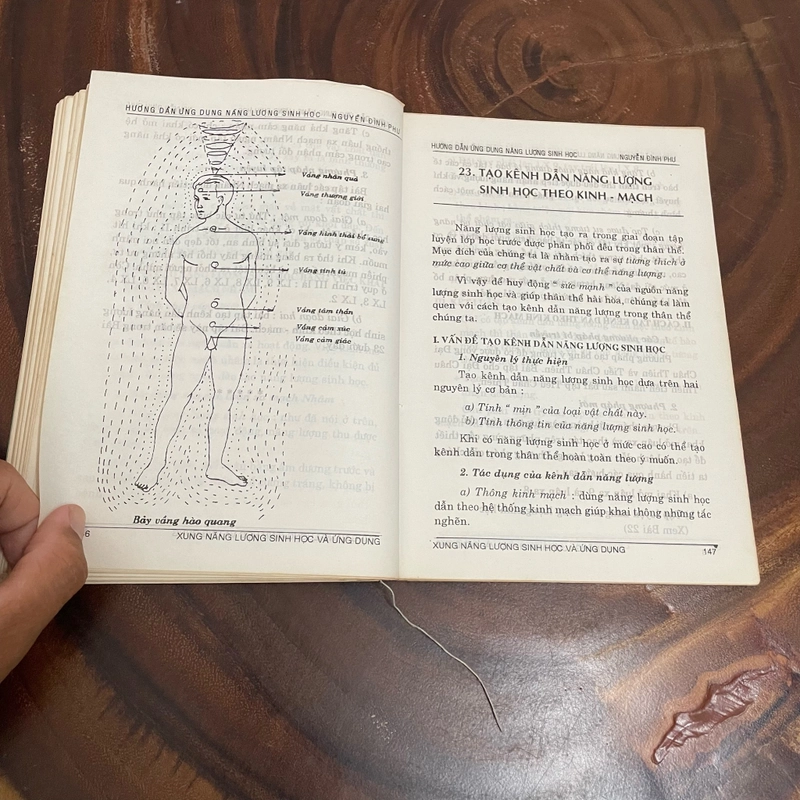 HƯỚNG DẪN ỨNG DỤNG NĂNG LƯỢNG SINH HỌC NGUYỄN ĐÌNH PHƯ
Vầng nhân quả
Vầng thượng giới
Vầng hình thái bổ sung
Vầng tinh tú
Vầng tâm thần
Vầng cảm xúc
Vầng cảm giác
Bảy vầng hào quang
6 XUNG NĂNG LƯỢNG SINH HỌC VÀ ỨNG DỤNG
HƯỚNG DẪN ỨNG DỤNG NĂNG LƯỢNG SINH HỌC NGUYỄN ĐÌNH PHƯ
23. TẠO KÊNH DẪN NĂNG LƯỢNG
SINH HỌC THEO KINH - MẠCH
Năng lượng sinh học tạo ra trong giai đoạn tập
luyện lớp học trước được phân phối đều trong thân thể.
Mục đích của chúng ta là nhằm tạo ra sự tương thích ở
mức cao giữa cơ thể vật chất và cơ thể năng lượng.
Vì vậy để huy động " sức mạnh " của nguồn năng
lượng sinh học và giúp thân thể hài hòa, chúng ta làm
quen với cách tạo kênh dẫn năng lượng trong thân thể
chúng ta.
I. VẤN ĐỀ TẠO KÊNH DẪN NĂNG LƯỢNG SINH HỌC
1. Nguyên lý thực hiện
Tạo kênh dẫn năng lượng sinh học dựa trên hai
nguyên lý cơ bản :
a) Tính " mịn " của loại vật chất này.
b) Tính thông tin của năng lượng sinh học.
Khi có năng lượng sinh học ở mức cao có thể tạo
kênh dẫn trong thân thể hoàn toàn theo ý muốn.
2. Tác dụng của kênh dẫn năng lượng
a) Thông kinh mạch : dùng năng lượng sinh học
dẫn theo hệ thống kinh mạch giúp khai thông những tắc
nghẽn.
(Xem Bài 22)
XUNG NĂNG LƯỢNG SINH HỌC VÀ ỨNG DỤNG 147